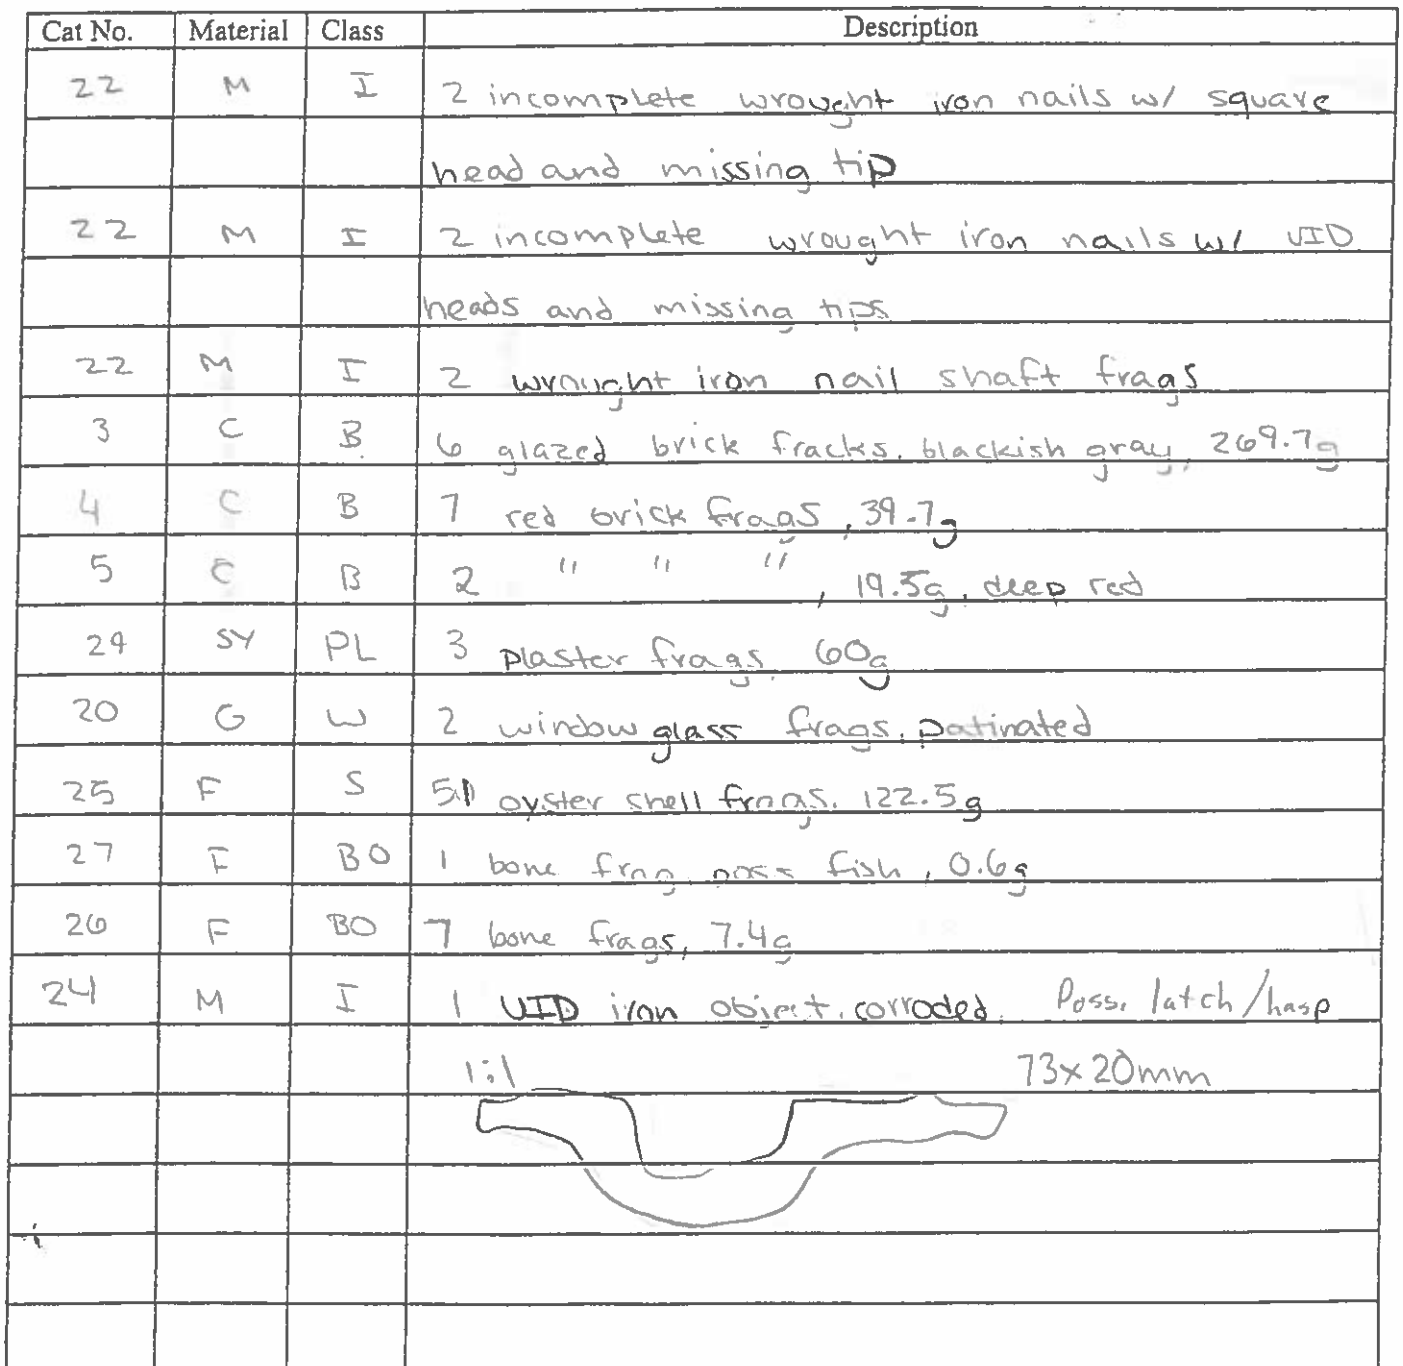 Cat No. Material Class Description
22 M I 2 incomplete wrought iron nails w/ square
head and missing tip
22 M I 2 incomplete wrought iron nails w/ UID
heads and missing tips
22 M I 2 wrought iron nail shaft frags
3 C B 6 glazed brick fracks, blackish gray, 269.7g
4 C B 7 red brick frags, 39.7g
5 C B 2 " " ", 19.5g, deep red
SY PL 3 plaster frags, 60g
20 G W 2 window glass frags, patinated
25 F S oyster shell frags, 122.5g
27 F BO 1 bone frag, poss fish, 0.6g
26 F BO 7 bone frags, 7.4g
24 M I 1 UID iron object, corroded, Poss. latch/hasp
1:1 73x20mm